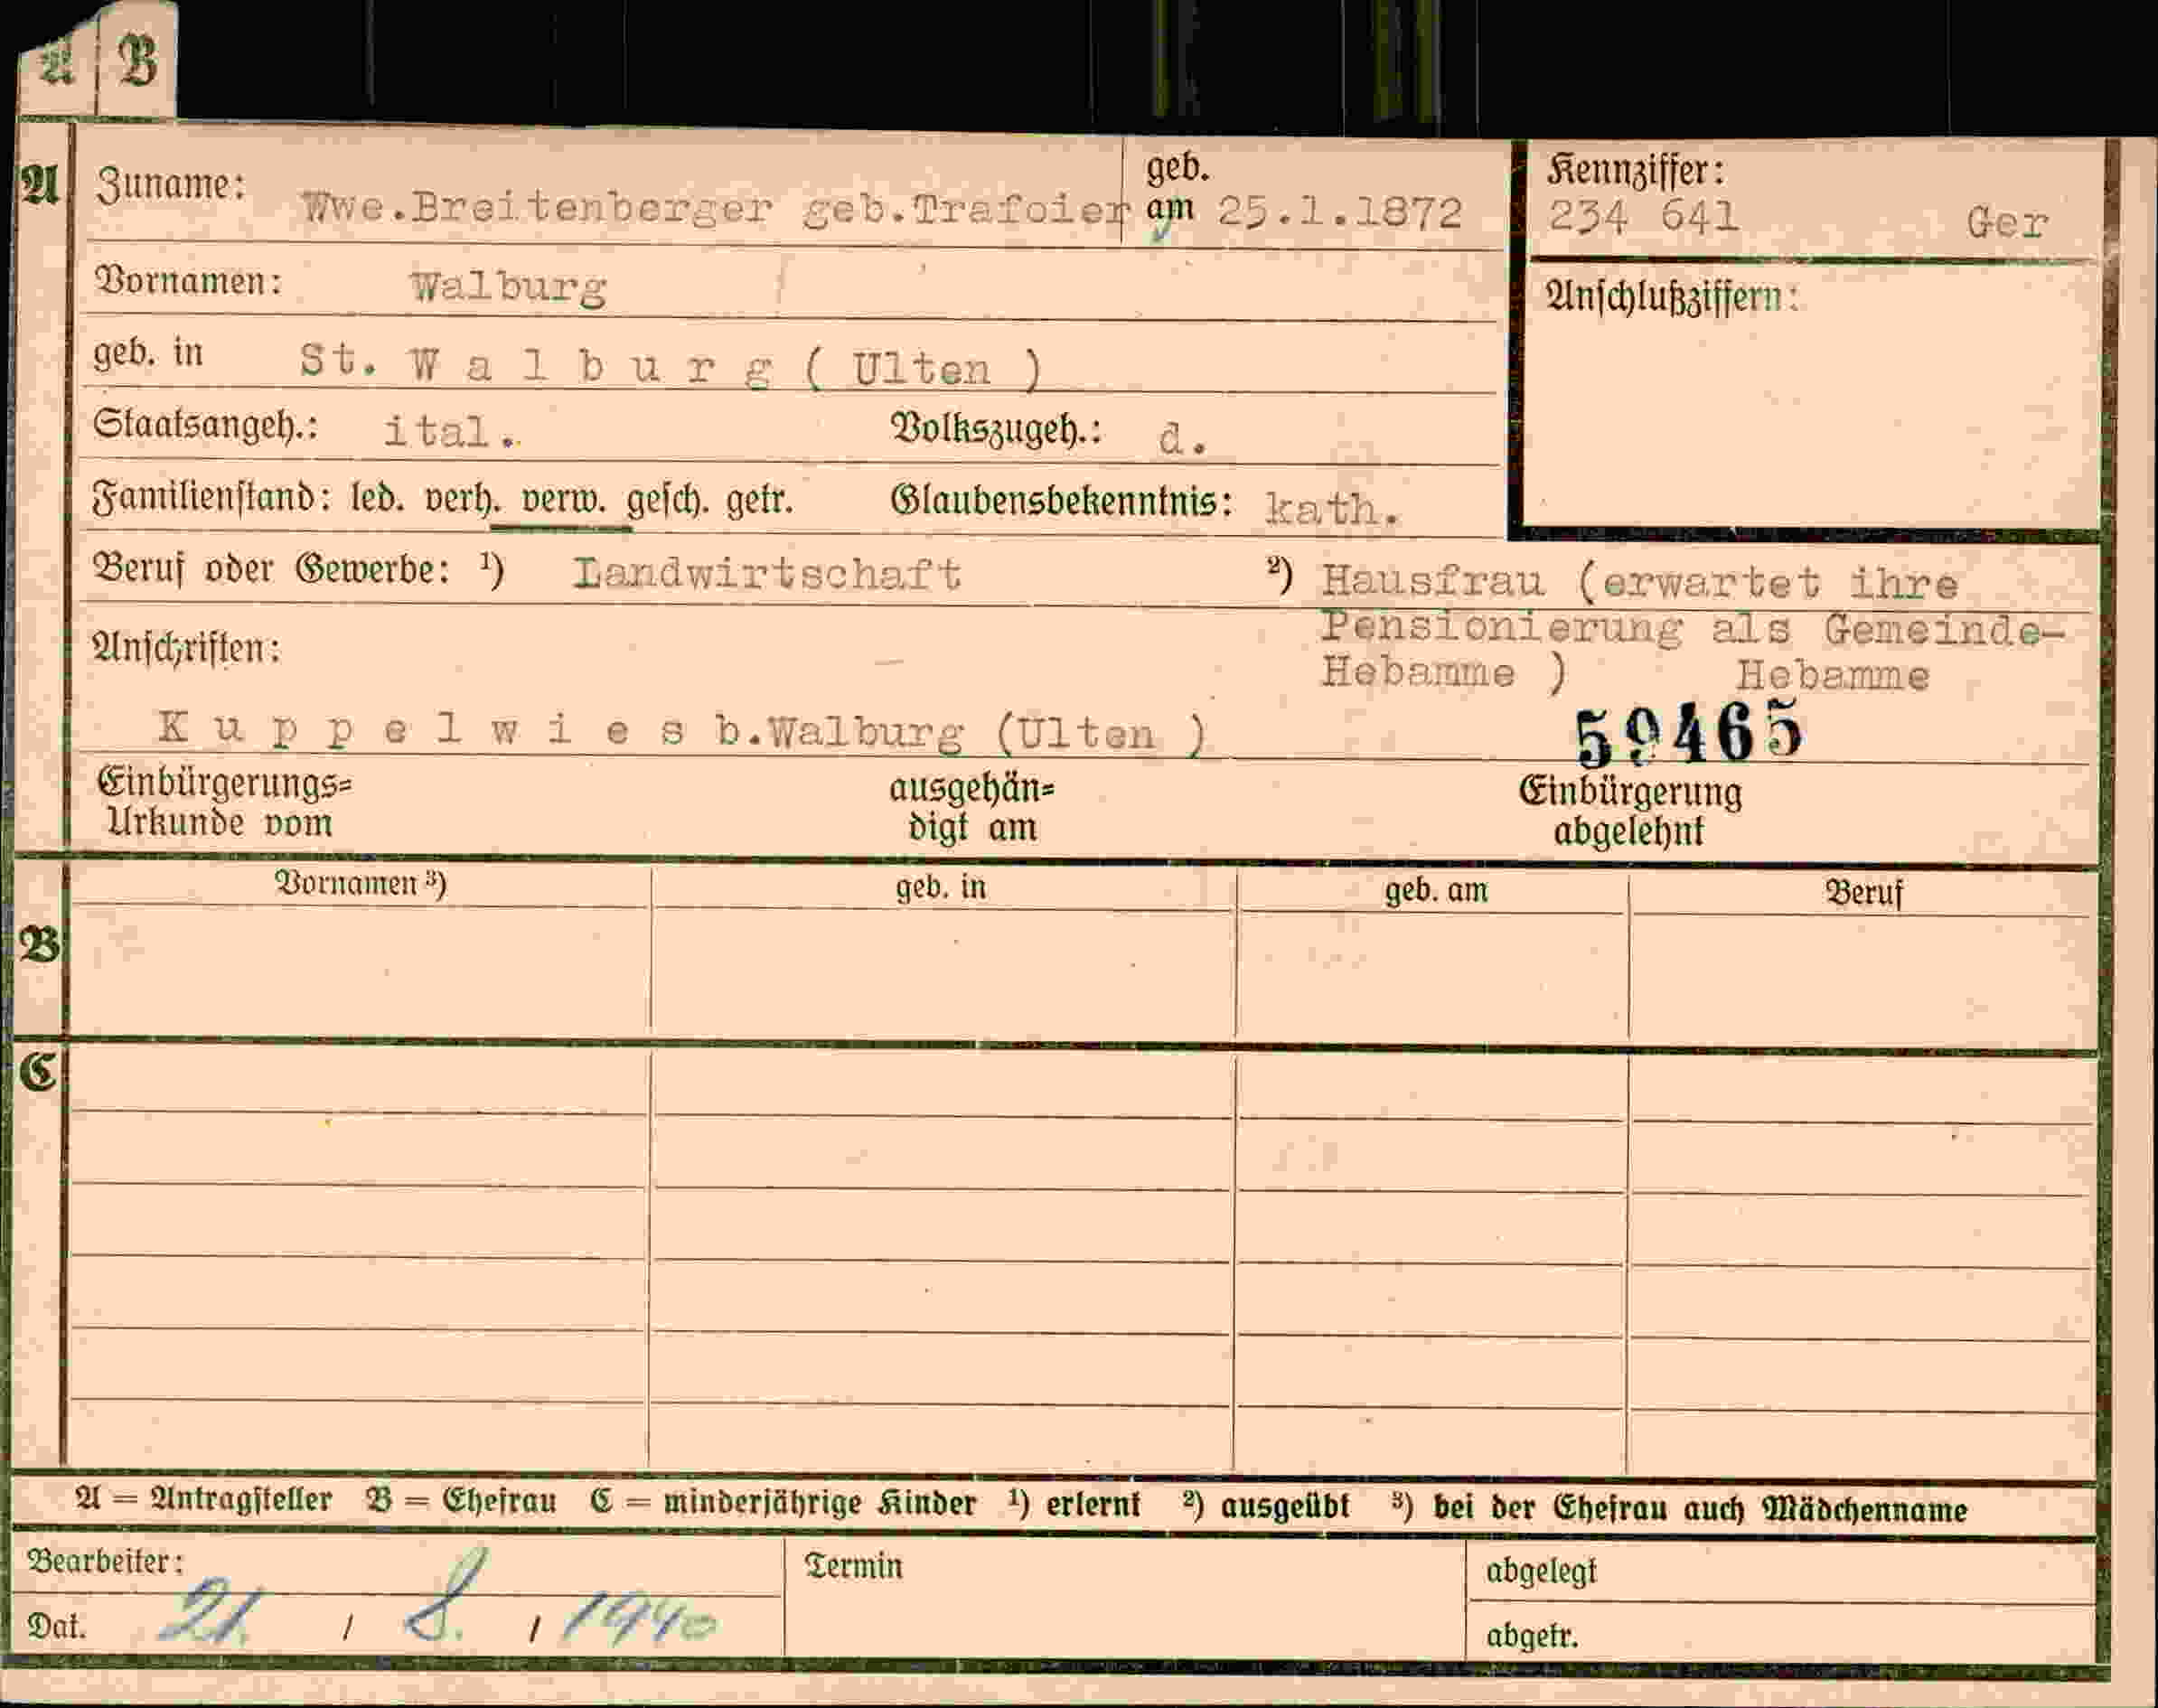 A B
A Zuname: Wwe.Breitenberger geb.Trafoier geb. am 25.1.1872
Kennziffer:
234 641 Ger
Vornamen: Walburg
Anschlußziffern:
geb. in St. W a l b u r g ( Ulten )
Staatsangeh.: ital. Volkszugeh.: d.
Familienstand: led. verh. verw. gesch. getr. Glaubensbekenntnis: kath.
Beruf oder Gewerbe: ¹) Landwirtschaft ²) Hausfrau (erwartet ihre
Pensionierung als Gemeinde-
Hebamme ) Hebamme
Anschriften:
K u p p e l w i e s b.Walburg (Ulten ) 59465
Einbürgerungs=
Urkunde vom
ausgehän=
digt am
Einbürgerung
abgelehnt
Vornamen ³) geb. in geb. am Beruf
B
C
A = Antragsteller B = Ehefrau C = minderjährige Kinder ¹) erlernt ²) ausgeübt ³) bei der Ehefrau auch Mädchenname
Bearbeiter:
Dat. 21. / 8. / 1940
Termin
abgelegt
abgetr.